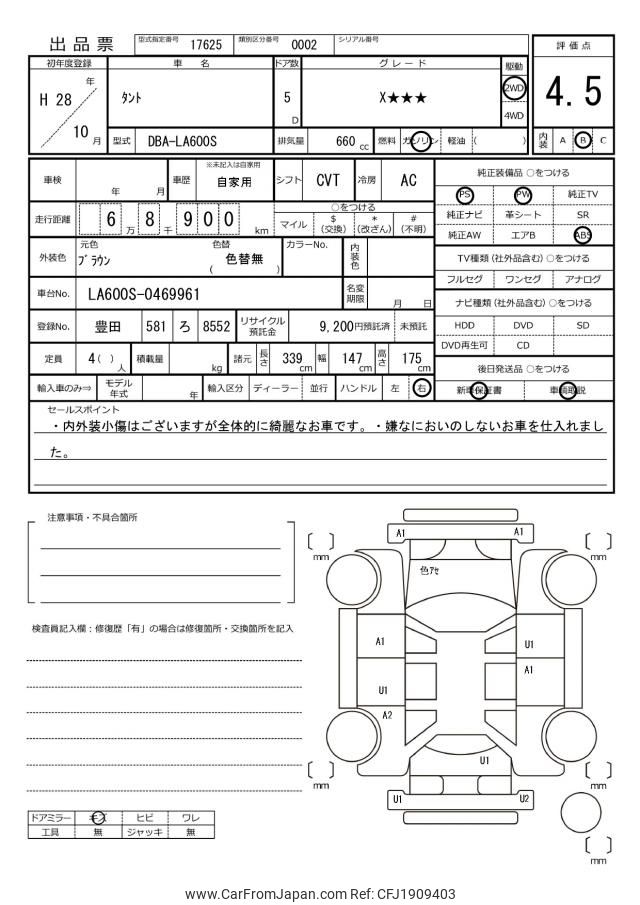 出品票 型式指定番号 17625 類別区分番号 0002 シリアル番号
評価点
4.5
初年度登録 車名 ドア数 グレード 駆動
H 28 年 10 月 タント 5 D X★★★ 2WD 4WD
型式 DBA-LA600S 排気量 660 cc 燃料 ガソリン 軽油 ( )
内装 A B C
車検 年 月 車歴 ※未記入は自家用 自家用 シフト CVT 冷房 AC
走行距離 6 万 8 千 9 0 0 km
○をつける
マイル $ (交換) * (改ざん) # (不明)
外装色 元色 ブラウン 色替 ( 色替無 ) カラーNo. 内装色
車台No. LA600S-0469961 名変期限 月 日
登録No. 豊田 581 ろ 8552 リサイクル預託金 9,200円預託済 未預託
定員 4( ) 人 積載量 kg 諸元 長さ 339 cm 幅 147 cm 高さ 175 cm
輸入車のみ⇒ モデル年式 年 輸入区分 ディーラー 並行 ハンドル 左 右
純正装備品 ○をつける
PS PW 純正TV
純正ナビ 革シート SR
純正AW エアB ABS
TV種類(社外品含む) ○をつける
フルセグ ワンセグ アナログ
ナビ種類(社外品含む) ○をつける
HDD DVD SD
DVD再生可 CD
後日発送品 ○をつける
新車保証書 車輌取説
セールスポイント
・内外装小傷はございますが全体的に綺麗なお車です。・嫌なにおいのしないお車を仕入れまし
た。
注意事項・不具合箇所
検査員記入欄:修復歴「有」の場合は修復箇所・交換箇所を記入
ドアミラー キズ ヒビ ワレ
工具 無 ジャッキ 無
A1 A1
mm mm
色アセ
A1 U1
A1
U1
A2
U1
mm mm
U1 U2
mm
www.CarFromJapan.com Ref: CFJ1909403